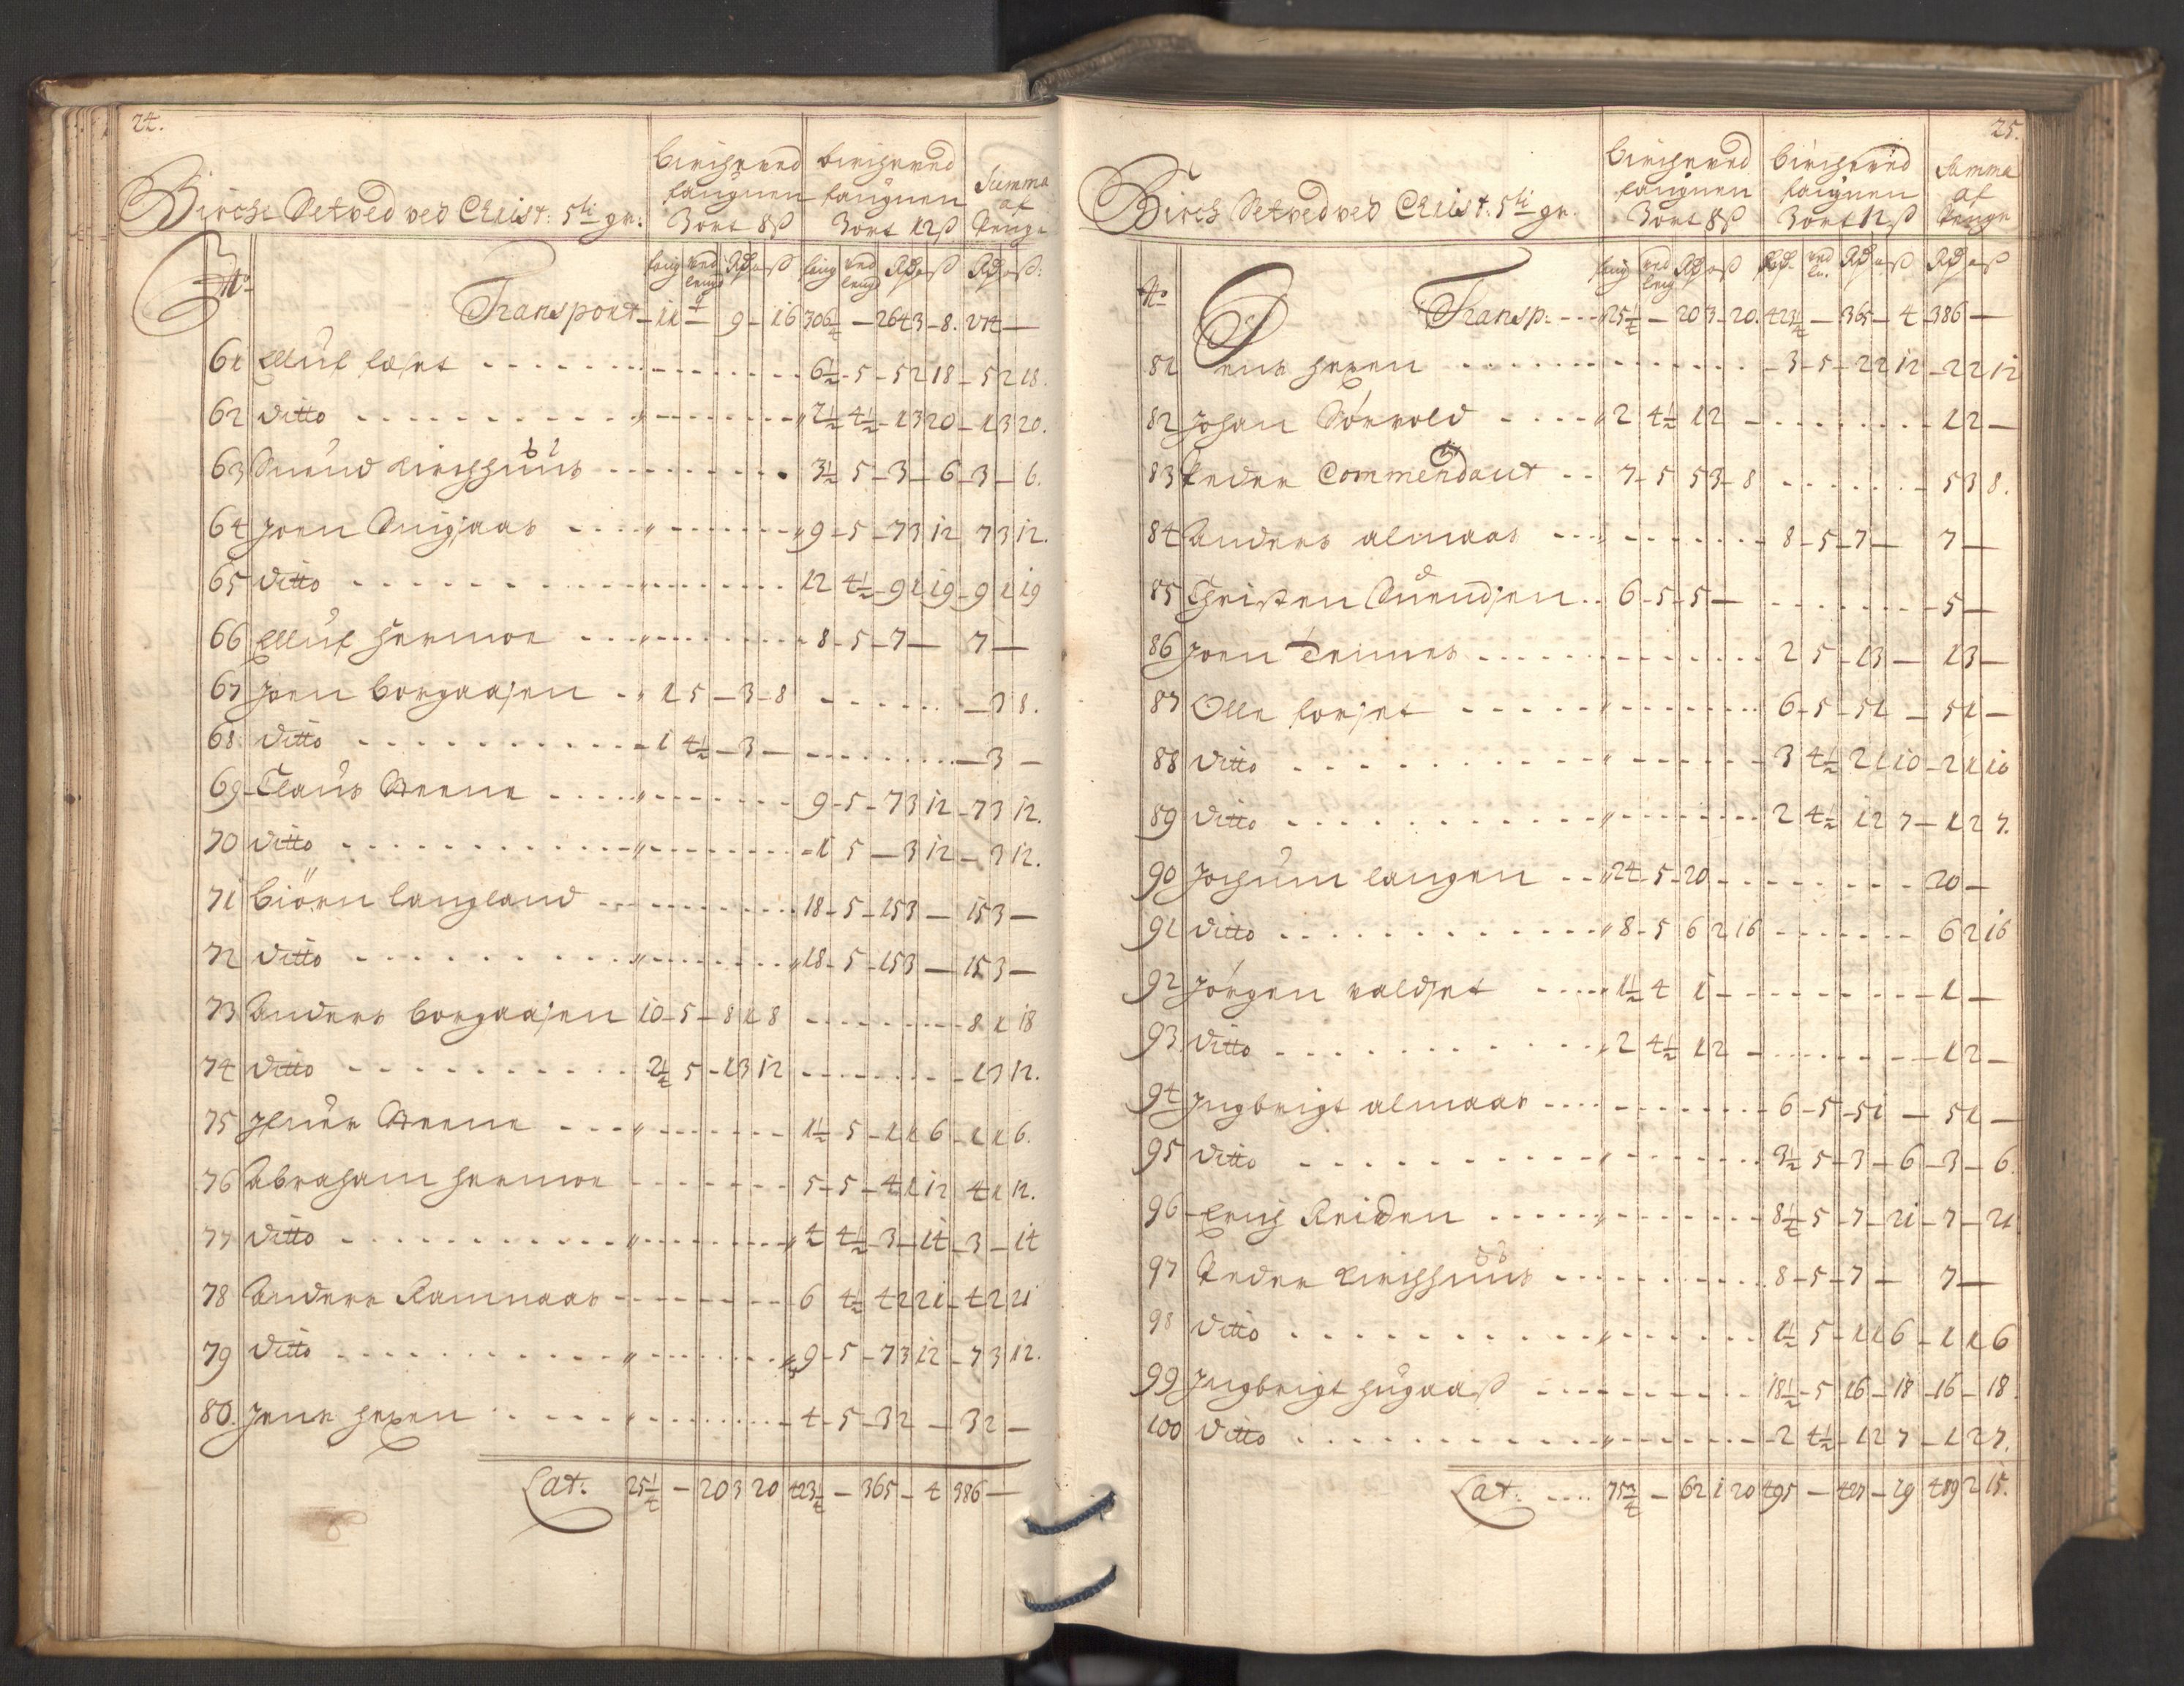 24.
Birche Setved ved Christ: 5ti gr:
bircheved faugnen 3 ort 8ß
bircheved faugnen 3 ort 12ß
Summa af Penge
No
faug ved leng Rd o ß faug ved leng Rd o ß Rd o ß:
Transport - 11 1/4 - 9 - 16 306 1/4 - 264 3 - 8. 274 -
61 Elluf - - - 6 1/2 - 5 - 5 2 18 - 5 2 18.
62 ditto - - - 2 1/2 4 1/2 - 1 3 20 - 1 3 20.
63 Kirchhuus - - - 3 1/2 5 - 3 - 6 - 3 - 6.
64 Joen - - - 9 - 5 - 7 3 12 7 3 12.
65 ditto - - - 12 4 1/2 - 9 1 19 - 9 1 19
66 Elluf hermoe - - - 8 - 5 - 7 - 7 -
67 Joen borgaasen - - 1 5 - 3 - 8 - - - - 3 8.
68. ditto - - - 1 4 1/2 - 3 - - - - - 3 -
69 Claus Weene - - - 9 - 5 - 7 3 12 - 7 3 12.
70 ditto - - - 1 5 - 3 12 - 3 12.
71 Biörn langland - - - 18 - 5 - 15 3 - 15 3 -
72 ditto - - - 18 - 5 - 15 3 - 15 3 -
73 Anders borgaasen 10 - 5 - 8 1 8 - - - 8 1 18
74 ditto - - - 2 1/2 5 - 1 3 12 - - - 1 3 12.
75 Weene - - - 1 1/2 5 - 1 1 6 - 1 1 6.
76 Abraham hermoe - - - 5 - 5 - 4 1 12 4 1 12.
77 ditto - - - 4 4 1/2 - 3 - 14 - 3 - 14
78 Anders Ramnaas - - - 6 4 1/2 4 2 21 - 4 2 21
79 ditto - - - 9 - 5 - 7 3 12 - 7 3 12.
80. Jens hexen - - - 4 - 5 - 3 2 - 3 2 -
Lat: 25 1/4 - 20 3 20 423 1/4 - 365 - 4 386 -
25.
Birch Setved ved Christ: 5ti gr.
bircheved faugnen 3 ort 8ß
bircheved faugnen 3 ort 12ß
Summa af Penge
No
faug ved leng Rd o ß ved le. Rd o ß Rd o ß
Transp: - - - 25 1/4 - 20 3 - 20. 423 1/4 - 365 - 4 - 386 -
81 Jens hexen - - - 3 - 5 - 2 2 12 - 2 2 12
82 Johan Sörvold - - - 2 4 1/2 1 2 - - - - 1 2 -
83 Peder Commendant - - 7 - 5 5 3 - 8 - - - 5 3 8.
84 Anders almaas - - - 8 - 5 - 7 - 7 -
85 Christen Suendsen - - 6 - 5 - 5 - - - - 5 -
86 Joen - - - 2 5 - 1 3 - 1 3 -
87 Olle - - - 6 - 5 - 5 1 - 5 1 -
88 ditto - - - 3 4 1/2 2 1 10 - 2 1 10
89 ditto - - - 2 4 1/2 1 2 7 - 1 2 7.
90 Jochum langen - - 24 - 5 - 20 - - - 20 -
91 ditto - - - 8 - 5 6 2 16 - - - 6 2 16
92 Jörgen valdset - - - 1 1/2 4 1 - - - - 1 -
93. ditto - - - 2 4 1/2 1 2 - - - - 1 2 -
94 Ingbrigt almaas - - - 6 - 5 - 5 1 - 5 1 -
95 ditto - - - 3 1/2 5 - 3 - 6 - 3 - 6.
96 Erich Reiden - - - 8 1/4 - 5 - 7 - 21 - 7 - 21
97 Peder Kirchhuus - - - 8 - 5 - 7 - 7 -
98 ditto - - - 1 1/2 5 - 1 1 6 - 1 1 6
99 Ingbrigt hugaaß - - - 18 1/2 - 5 16 - 18 - 16 - 18.
100 ditto - - - 2 4 1/2 - 1 2 7 - 1 2 7.
Lat: - - - 75 3/4 - 62 1 20 495 - 427 - 19 489 2 15.